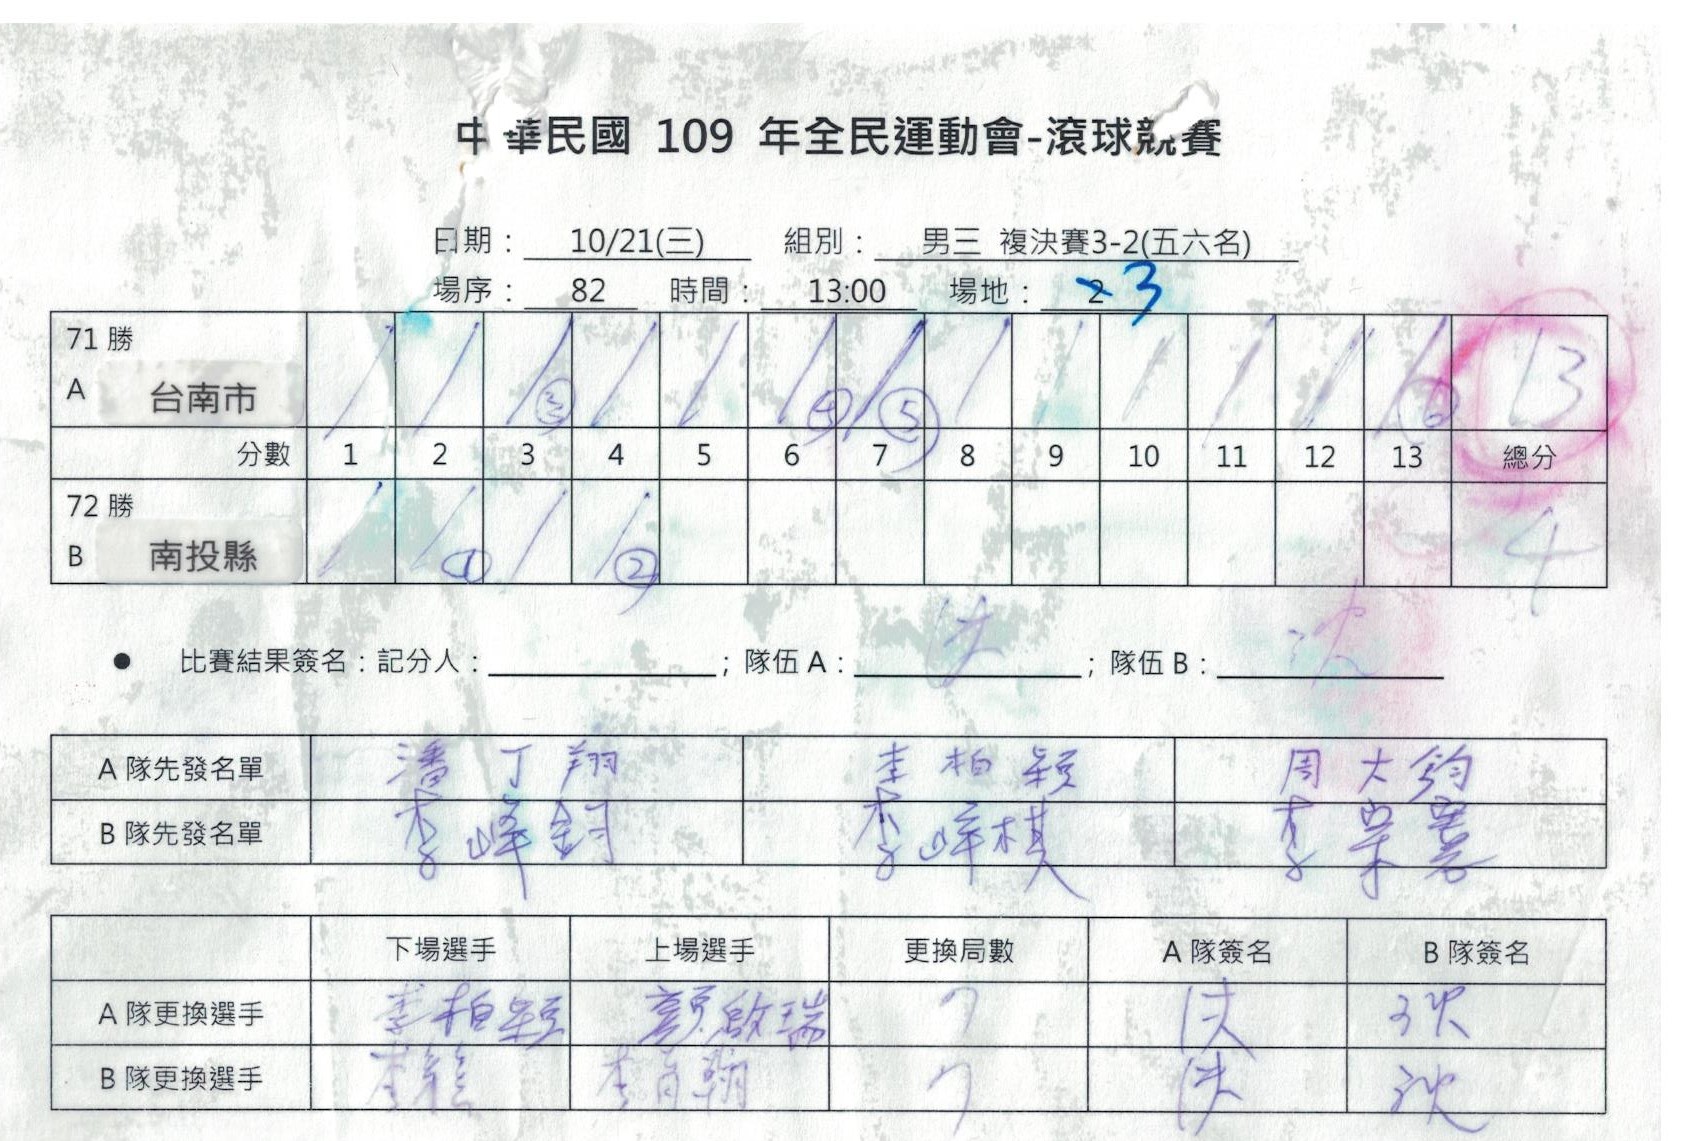 中華民國 109 年全民運動會-滾球競賽
日期： 10/21(三) 組別： 男三 複決賽3-2(五六名)
場序： 82 時間： 13:00 場地： 2 3
71 勝
A 台南市 ③ ④ ⑤ ⑥ 13
分數 1 2 3 4 5 6 7 8 9 10 11 12 13 總分
72 勝
B 南投縣 ① ② 4
● 比賽結果簽名：記分人： ；隊伍 A： ；隊伍 B：
A 隊先發名單 潘丁翔 李柏穎 周大鈞
B 隊先發名單 李峰 李峰棋 李
下場選手 上場選手 更換局數 A 隊簽名 B 隊簽名
A 隊更換選手 李柏穎 顏啟瑞 7
B 隊更換選手 李 李 翰 7